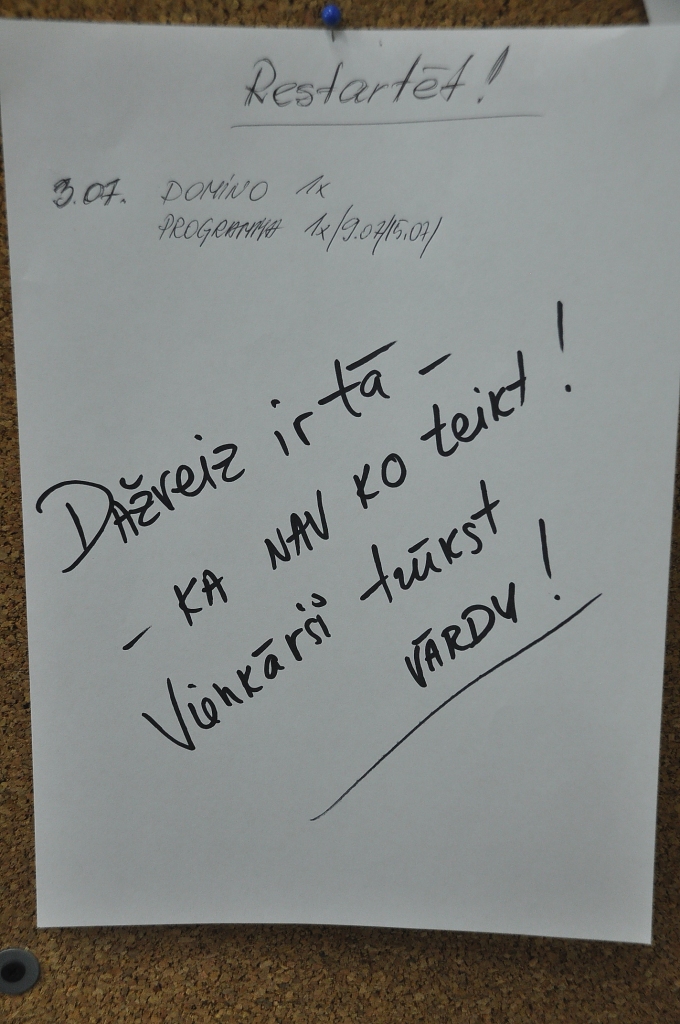 Restartēt!
3.07. DOMINO 1x
PROGRAMMA 1x/9.07/15.07/
Dažreiz ir tā -
- KA NAV KO teikt!
Vienkārši trūkst
VĀRDU!